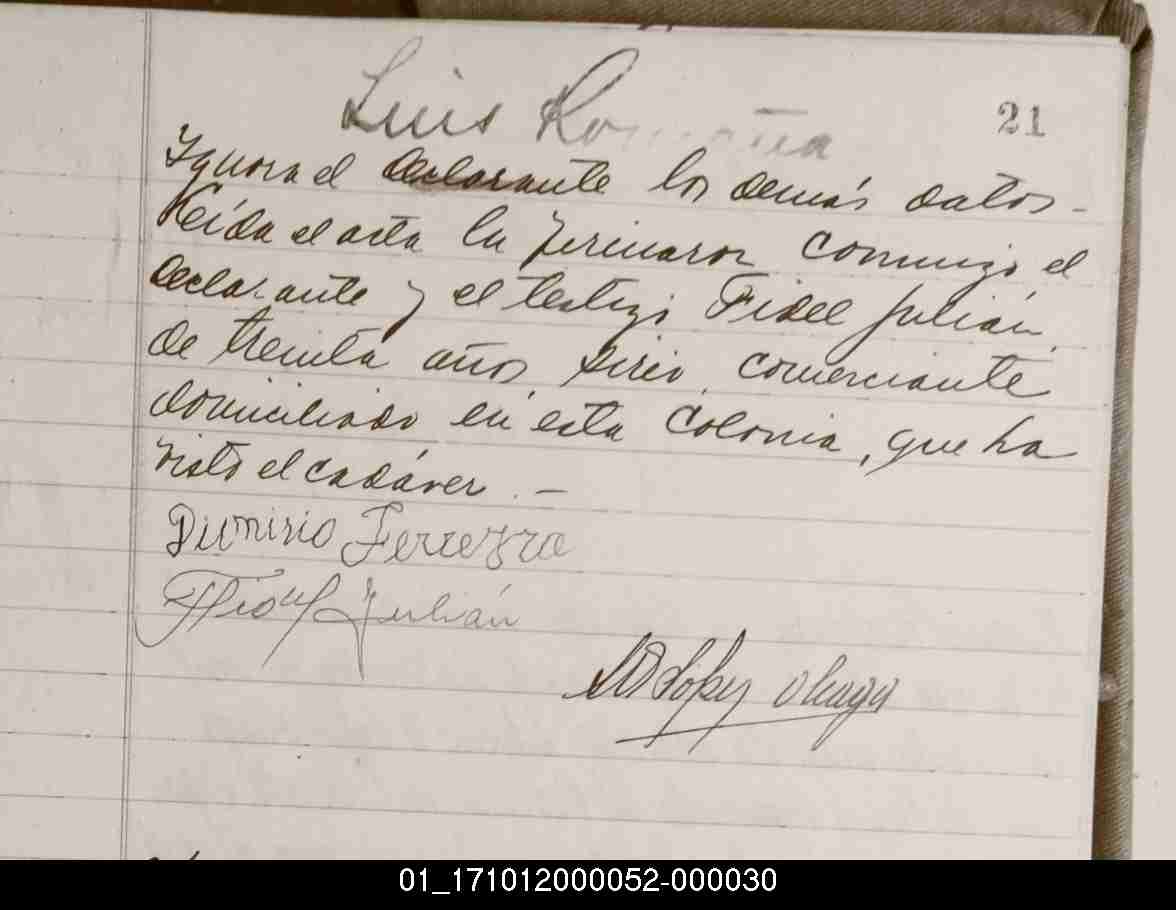 Luis
21
Ignora el declarante los demás datos -
Leída el acta la firmaron conmigo el
declarante y el testigo Fidel Julián,
de treinta años, sirio, comerciante
domiciliado en esta Colonia, que ha
visto el cadáver. -
Dionisio Ferreyra
Fidel Julián
López
01_171012000052-000030